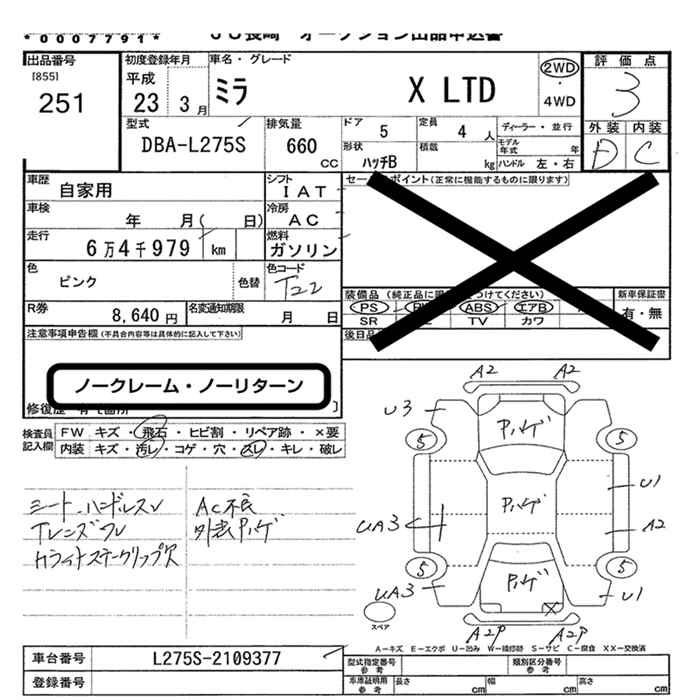 *0007791*
出品番号
[855]
251
初度登録年月
平成
23 3月
車名・グレード
ミラ X LTD
2WD
・
4WD
評価点
3
外装 内装
D C
型式
DBA-L275S
排気量
660 CC
ドア 5
定員 4 人
ディーラー・並行
モデル年式 年
形状 ハッチB
積載 kg
ハンドル 左・右
車歴 自家用
シフト IAT
車検 年 月( 日)
冷房 AC
走行 6万4千979 km
燃料 ガソリン
色 ピンク
色替
色コード T22
R券 8,640円
名変通知期限 月 日
セー ポイント(正常に機能するものに限ります)
装備品(純正品に つけてください)
PS ABS エアB
SR TV カワ
新車保証書
有・無
後日品
注意事項申告欄(不具合内容等は具体的に記入して下さい)
ノークレーム・ノーリターン
修復歴
検査員記入欄
FW キズ・飛石・ヒビ割・リペア跡・×要
内装 キズ・汚レ・コゲ・穴・スレ・キレ・破レ
シート、ハンドルスレ
AC不良
外装ハゲ
A2 A2
U3
ハゲ
5 5
U1
UA3
ハゲ
A2
5 5
ハゲ
UA3
U1
X
A2P A2P
スペア
A-キズ E-エクボ U-凹み W-補修跡 S-サビ C-腐食 XX-交換済
車台番号 L275S-2109377
登録番号
型式指定番号 参考
類別区分番号 参考
車庫証明用 参考
長さ cm
幅 cm
高さ cm